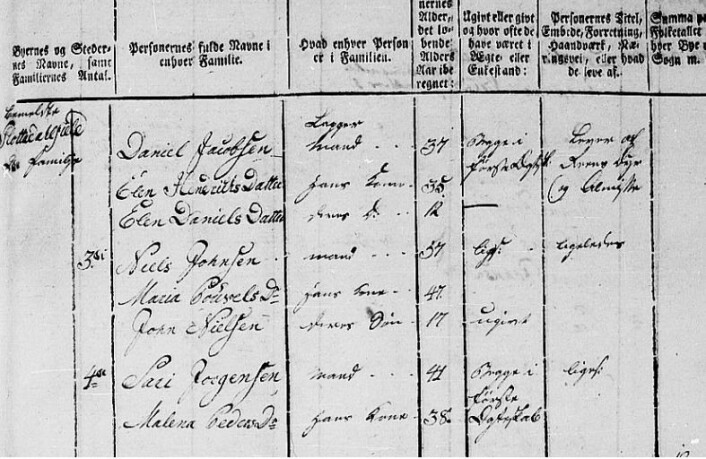 Byernes og Steder-
nes Navne, samt
Familiernes Antal.
Personernes fulde Navne i
enhver Familie.
Hvad enhver Person
er i Familien.
nernes
Alder,
det lø-
bende
Alders
Aar ibe
regnet:
Ugivt eller givt
og hvor ofte de
have været i
Ægte- eller
Enkestand:
Personernes Titel,
Embede, Forretning,
Haandværk, Næ-
ringsvei, eller hvad
de leve af.
Summa
Folketallet
hver Bye
Sogn m.
bemeldte
Familie
Daniel Jacobsen mand 37 Begge i
Første
Elen Hendriks Datter hans Kone 35 og Almisse
Elen Daniels Datter deres D. 12 —
3die Niels Johnsen mand 37 ligs: ligeledes
Maria Pouvels Dr hans Kone 47.
John Nielsen deres Søn 17 ugivt
4de Sari Jørgensen mand 41 Begge i ligs:
Første
Malena Peders Dr hans Kone 38 Ægteskab